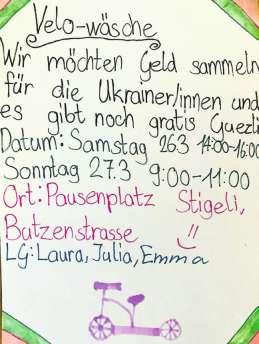 Velo-wäsche
Wir möchten Geld sammeln
für die Ukrainer/innen und
es gibt noch gratis Guezli
Datum: Samstag 26.3 14:00-16:00
Sonntag 27.3 9:00-11:00
Ort: Pausenplatz Stigeli,
Butzenstrasse
LG: Laura, Julia, Emma